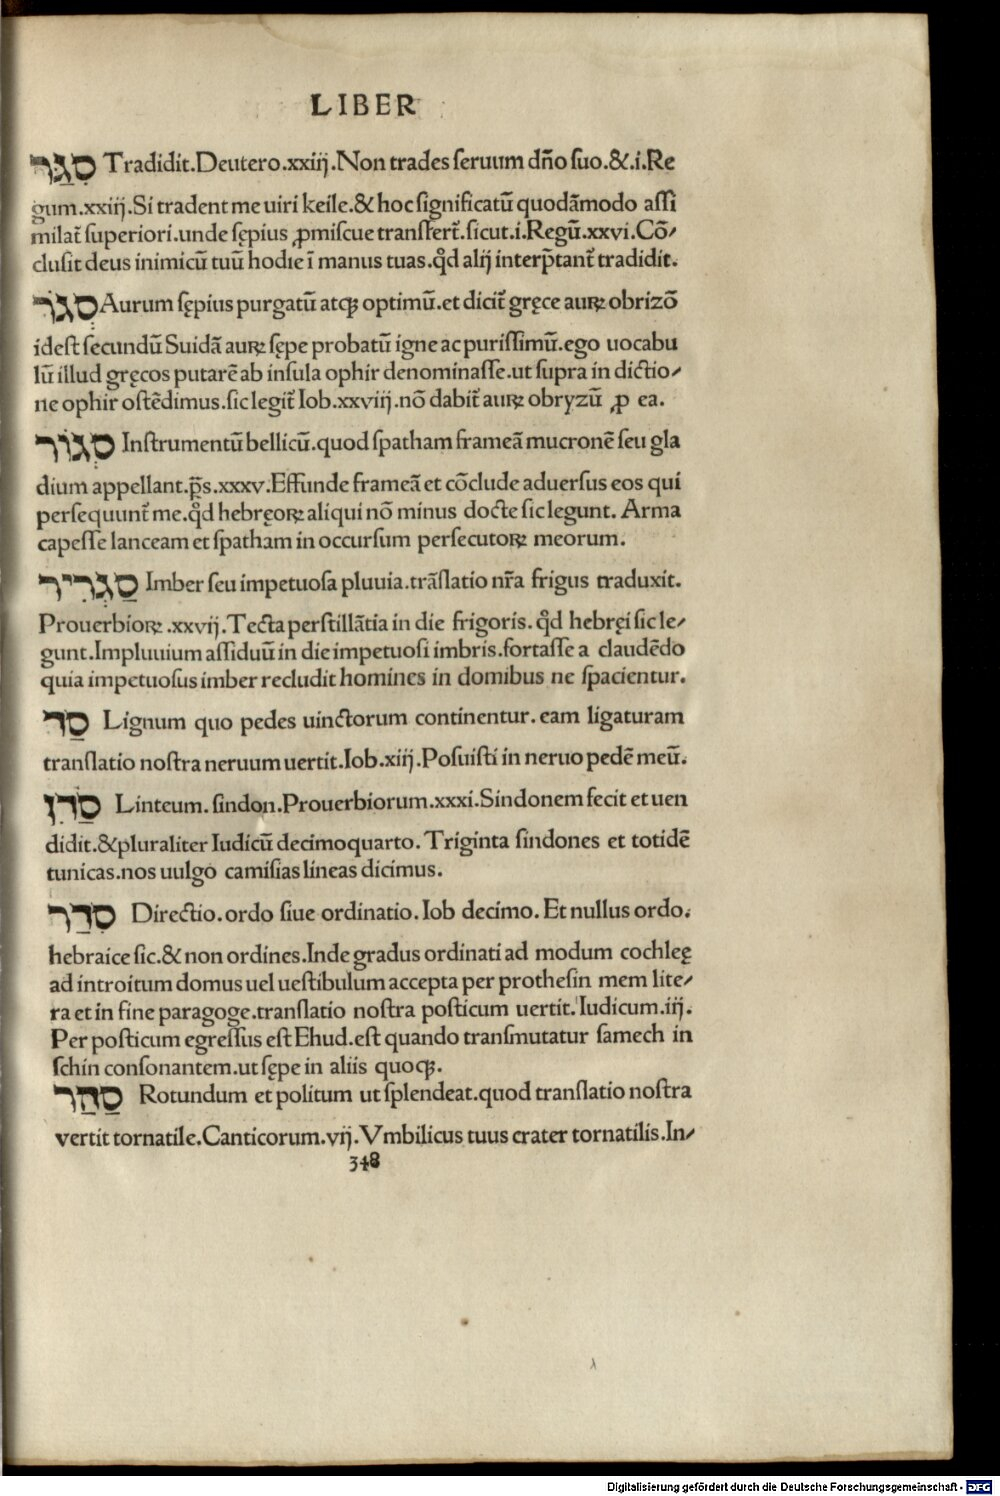 LIBER
סִגֵּר Tradidit.Deutero.xxiij.Non trades seruum dño suo.&.i.Re
gum.xxiij.Si tradent me uiri keile.&hoc significatũ quodãmodo assi
milat᷑ superiori.unde sępius ꝓmiscue transfert᷑.sicut.i.Regũ.xxvi.Cõ⸗
clusit deus inimicũ tuũ hodie ĩ manus tuas.qd̓ alij interp̃tant᷑ tradidit.
סְגֹר Aurum sępius purgatũ atqꝫ optimũ.et dicit᷑ gręce auꝝ obrizõ
idest secundũ Suidã auꝝ sępe probatũ igne ac purissimũ.ego uocabu
lũ illud gręcos putarẽ ab insula ophir denominasse.ut supra in dictio⸗
ne ophir ostẽdimus.sic legit᷑ Iob.xxviij.nõ dabit᷑ auꝝ obryzũ ꝓ ea.
סְגוֹר Instrumentũ bellicũ.quod spatham frameã mucronẽ seu gla
dium appellant.ps̃.xxxv.Effunde frameã et cõclude aduersus eos qui
persequunt᷑ me.qd̓ hebręoꝝ aliqui nõ minus docte sic legunt. Arma
capesse lanceam et spatham in occursum persecutoꝝ meorum.
סַגְרִיר Imber seu impetuosa pluuia.trãslatio nr̃a frigus traduxit.
Prouerbioꝝ.xxvij.Tecta perstillãtia in die frigoris.qd̓ hebręi sic le⸗
gunt.Impluuium assiduũ in die impetuosi imbris.fortasse a claudẽdo
quia impetuosus imber recludit homines in domibus ne spacientur.
סַד Lignum quo pedes uinctorum continentur.eam ligaturam
translatio nostra neruum uertit.Iob.xiij.Posuisti in neruo pedẽ meũ.
סַדִן Linteum.sindon.Prouerbiorum.xxxi.Sindonem fecit et uen
didit.&pluraliter Iudicũ decimoquarto. Triginta sindones et totidẽ
tunicas.nos uulgo camisias lineas dicimus.
סִדַר Directio.ordo siue ordinatio.Iob decimo.Et nullus ordo.
hebraice sic.&non ordines.Inde gradus ordinati ad modum cochleę
ad introitum domus uel uestibulum accepta per prothesin mem lite⸗
ra et in fine paragoge.translatio nostra posticum uertit.Iudicum.iij.
Per posticum egressus est Ehud.est quando transmutatur samech in
schin consonantem.ut sępe in aliis quoqꝫ.
סַהַר Rotundum et politum ut splendeat.quod translatio nostra
vertit tornatile.Canticorum.vij.Vmbilicus tuus crater tornatilis.In⸗
348
Digitalisierung gefördert durch die Deutsche Forschungsgemeinschaft - DFG